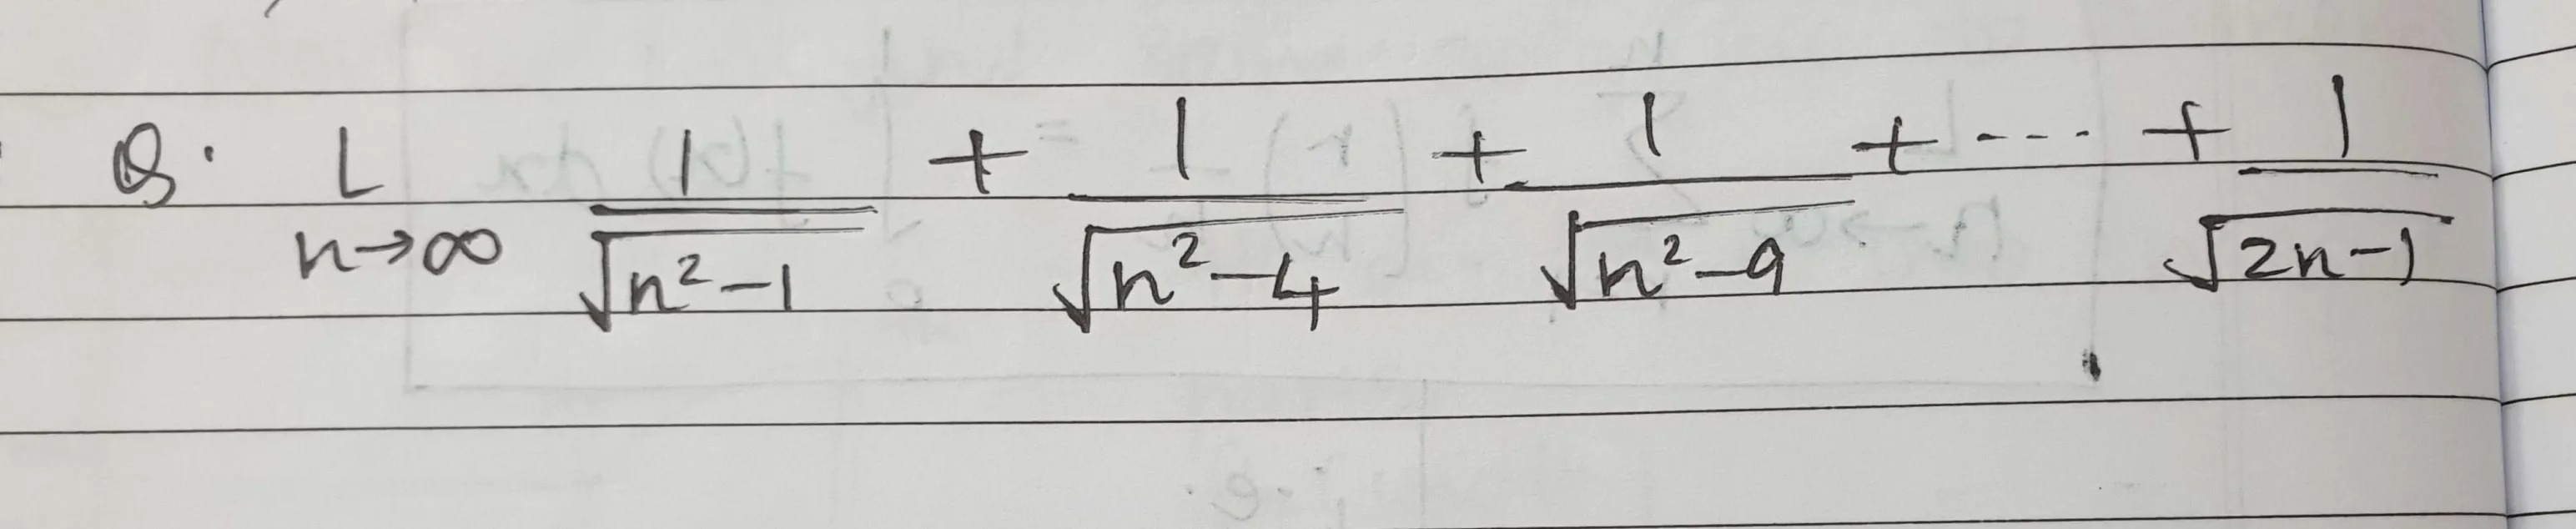 Q. L n→∞ 1/√(n²-1) + 1/√(n²-4) + 1/√(n²-9) + ---- + 1/√(2n-1)